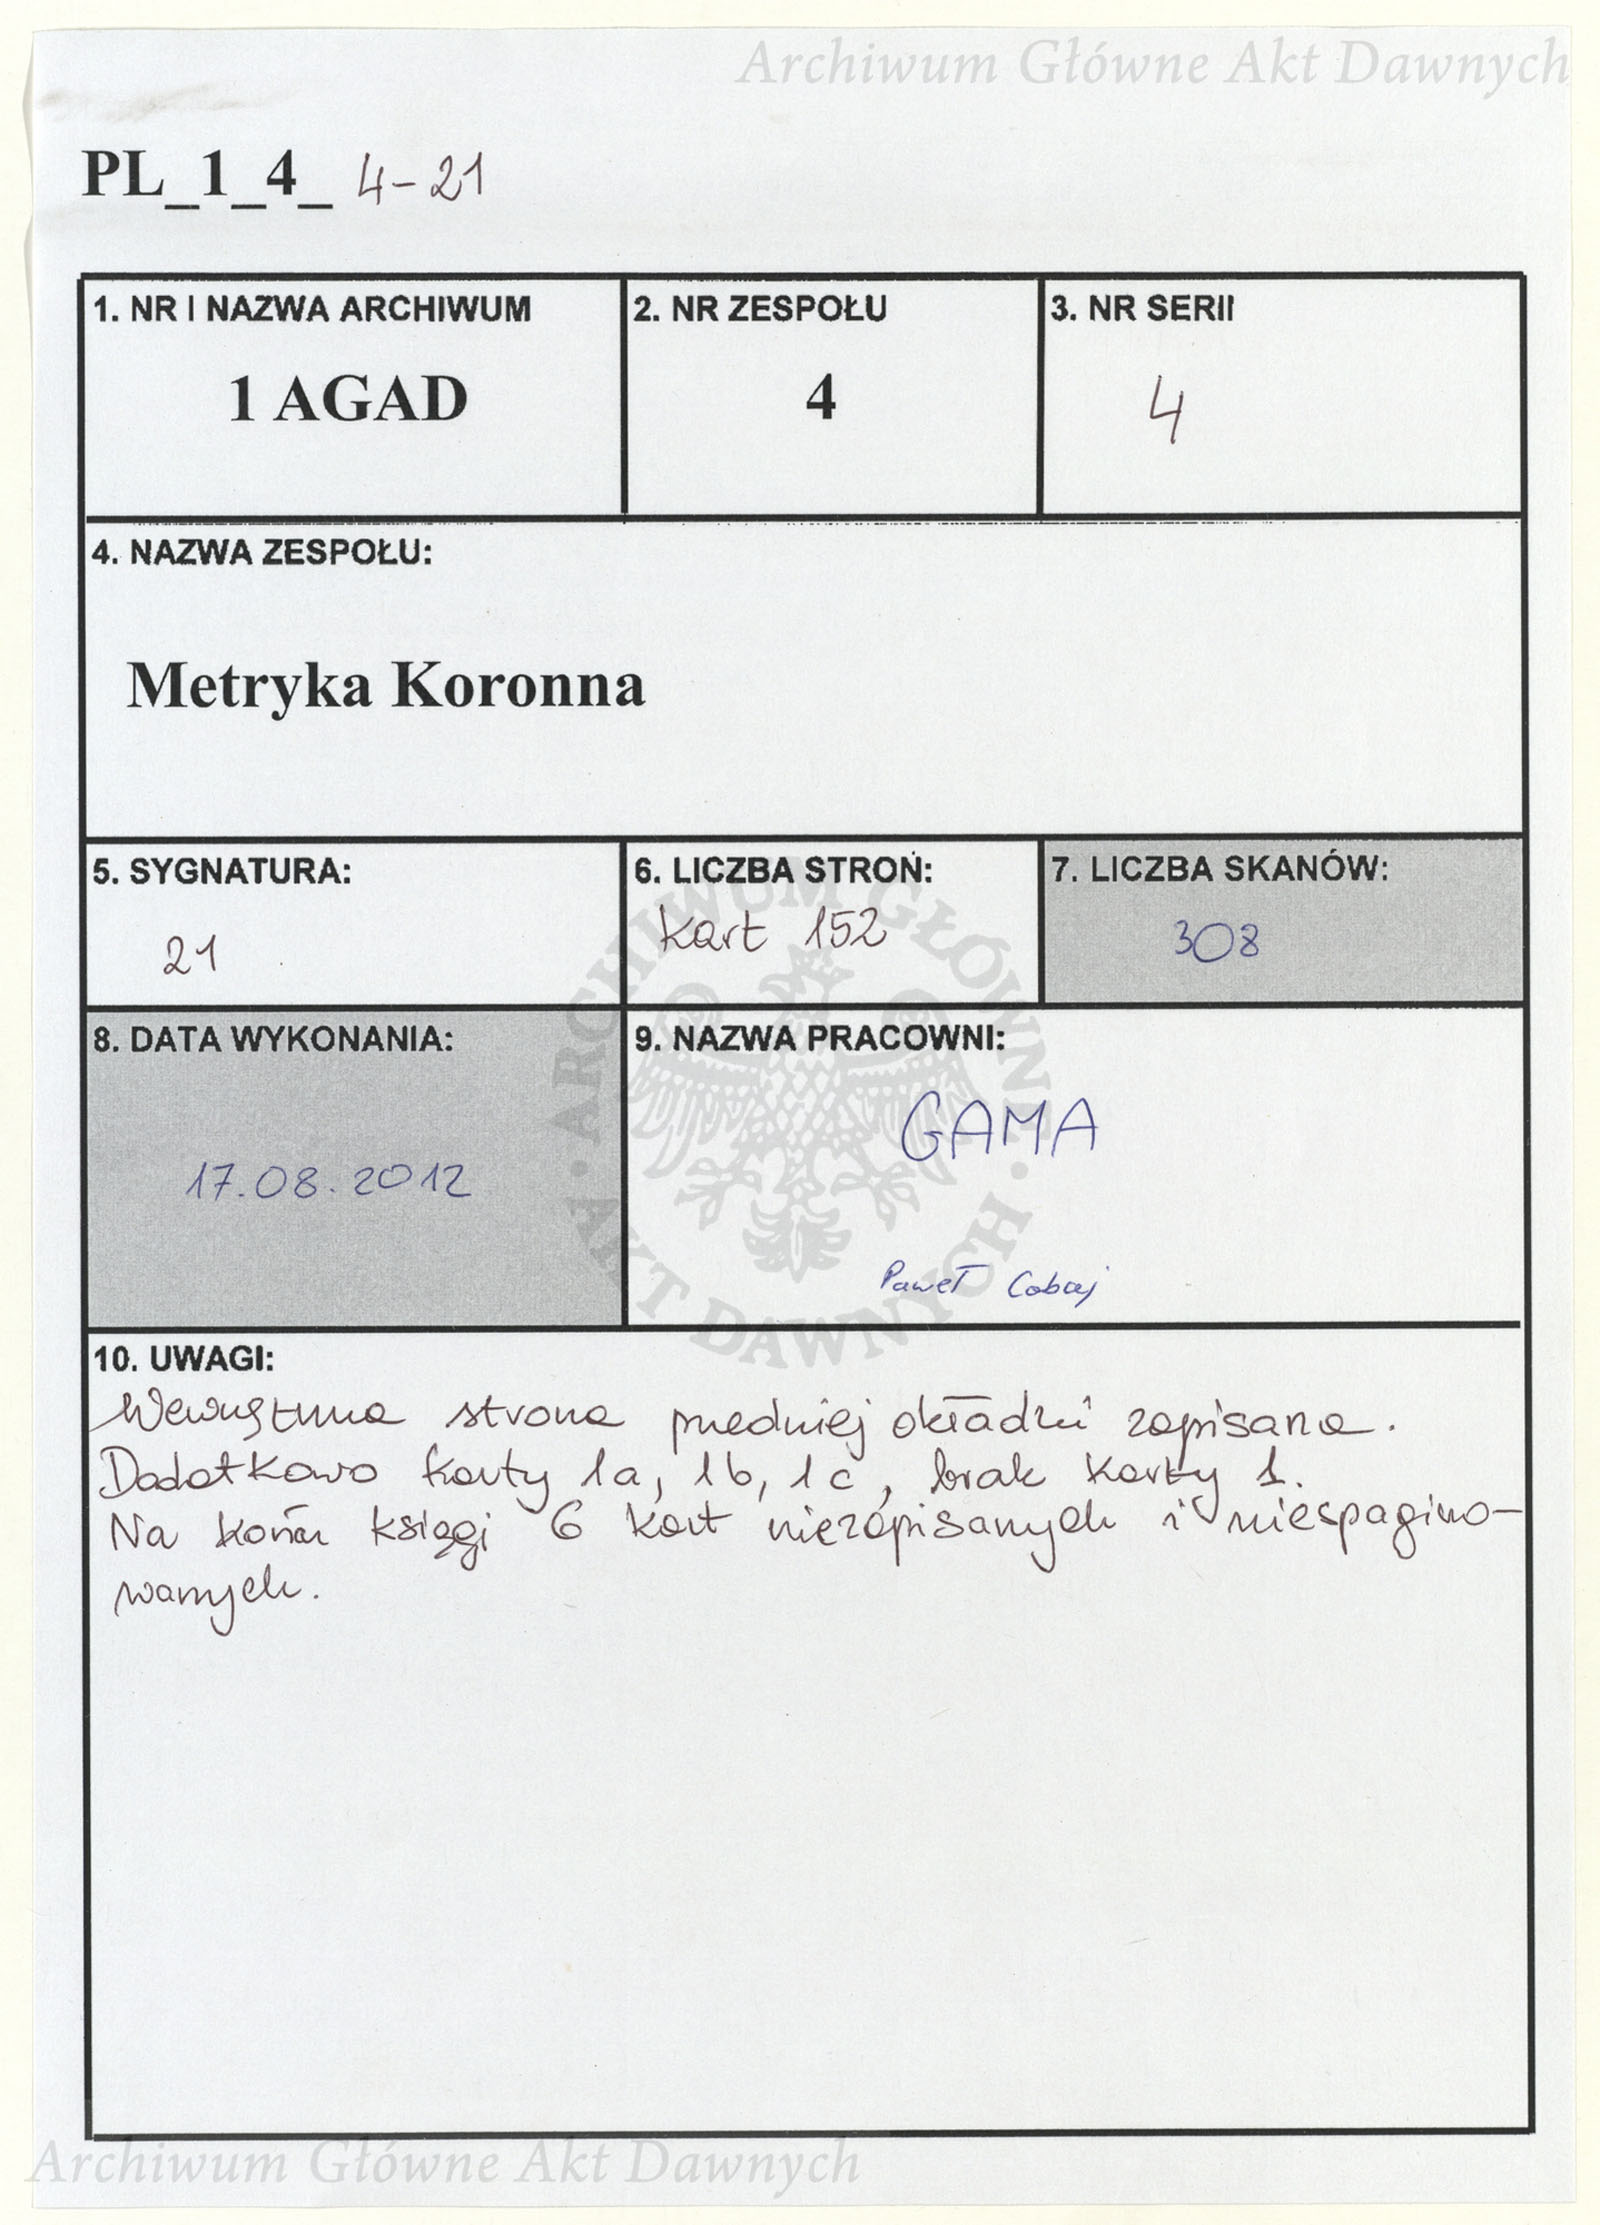 Archiwum Główne Akt Dawnych
PL_1_4_ 4-21
1. NR I NAZWA ARCHIWUM
1 AGAD
2. NR ZESPOŁU
4
3. NR SERII
4
4. NAZWA ZESPOŁU:
Metryka Koronna
5. SYGNATURA:
21
6. LICZBA STRON:
kart 152
7. LICZBA SKANÓW:
308
8. DATA WYKONANIA:
17.08.2012
9. NAZWA PRACOWNI:
GAMA
Paweł
10. UWAGI:
Wewnętrzna strona przedniej okładki zapisana.
Dodatkowo karty 1a, 1b, 1c, brak karty 1.
Na końcu księgi 6 kart niezapisanych i niespagino-
wanych.
ARCHIWUM GŁÓWNE AKT DAWNYCH
Archiwum Główne Akt Dawnych